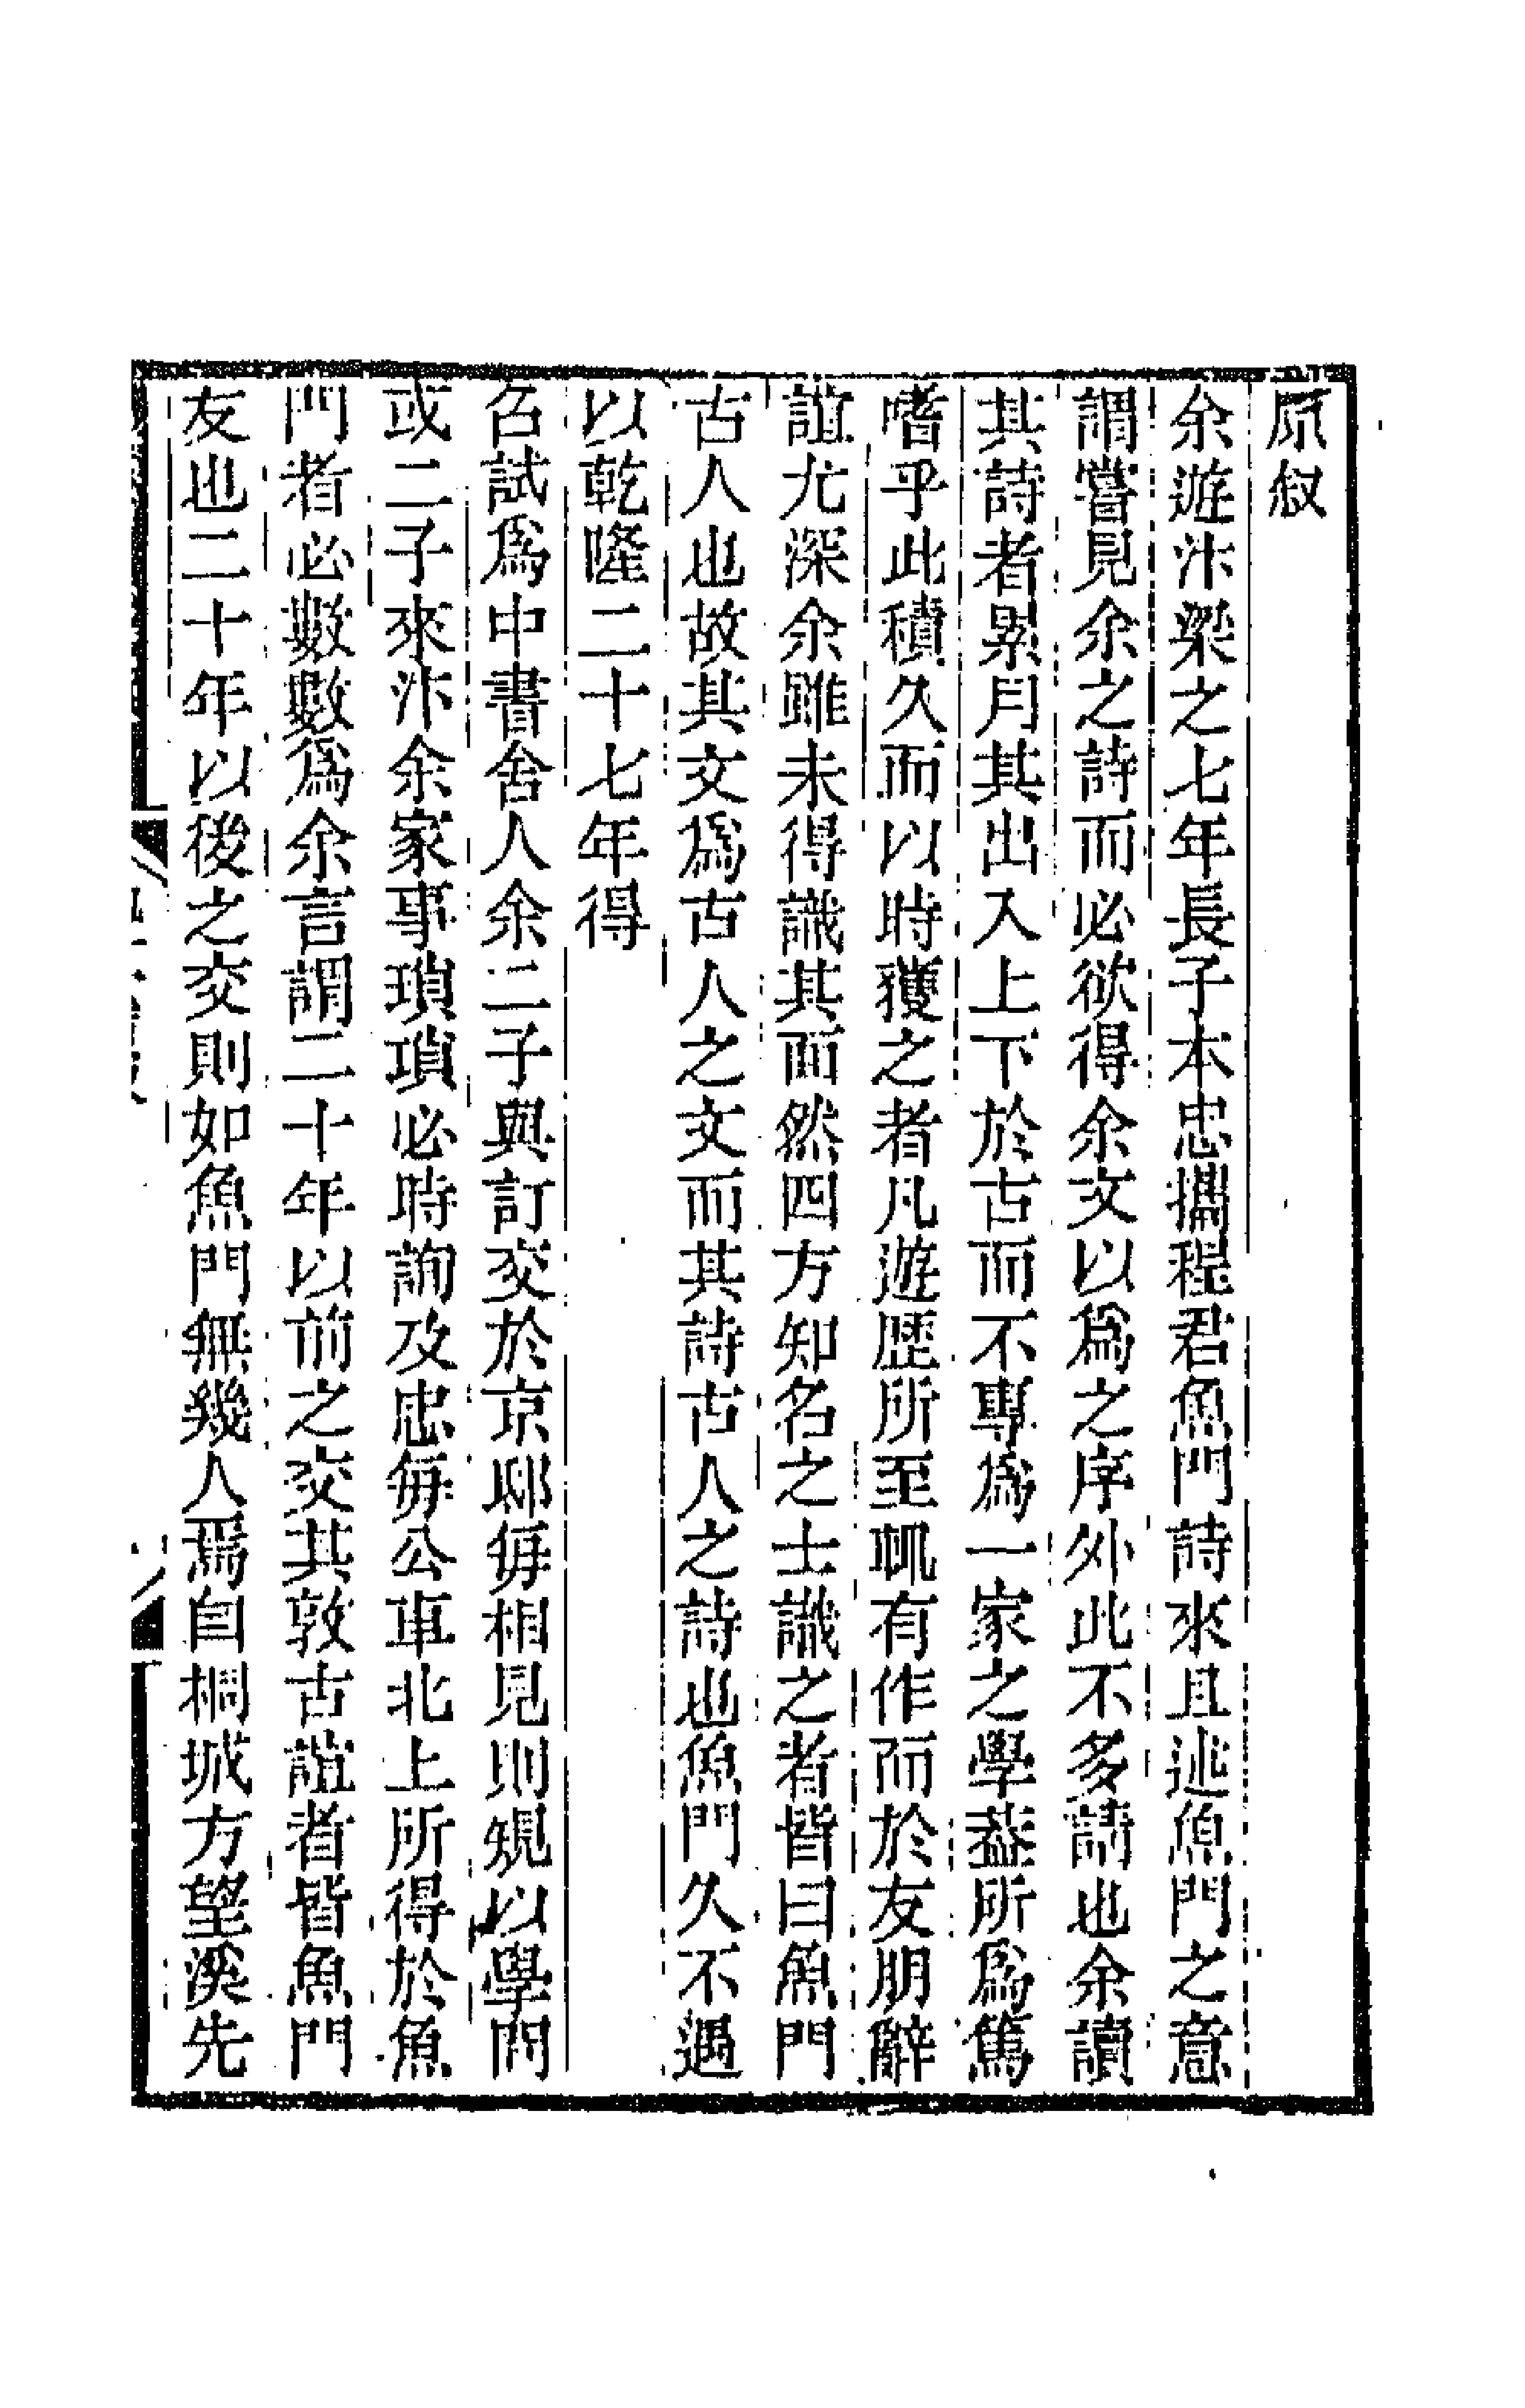 原敘
余遊汴梁之七年長子本忠攜程君魚門詩來且述魚門之意
謂嘗見余之詩而必欲得余文以爲之序外此不多請也余讀
其詩者累月其出入上下於古而不專爲一家之學葢所爲篤
嗜乎此積久而以時獲之者凡遊歷所至輒有作而於友朋辭
誼尤深余雖未得識其面然四方知名之士識之者皆曰魚門
古人也故其文爲古人之文而其詩古人之詩也魚門久不遇
以乾隆二十七年得
召試爲中書舍人余二子與訂交於京邸每相見則規以學問
或二子來汴余家事瑣瑣必時詢及忠每公車北上所得於魚
門者必數數爲余言謂二十年以前之交其敦古誼者皆魚門
友也二十年以後之交則如魚門無幾人焉自桐城方望溪先